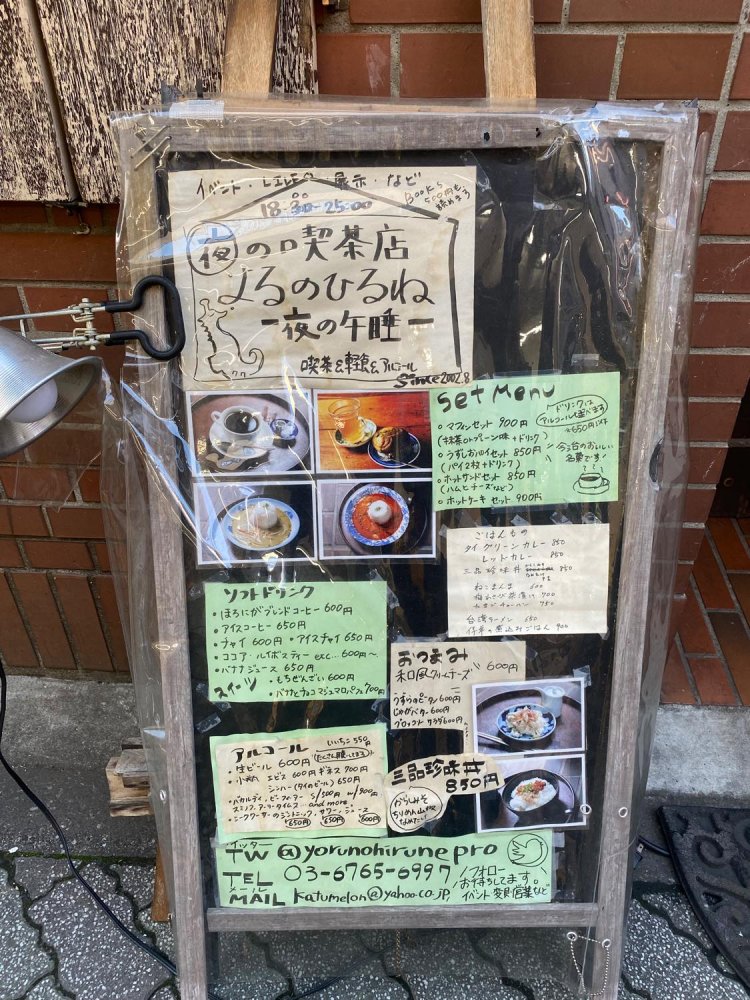 イベント・LIVE・展示・など
BOOKS
550円も
読めます
18:30-25:00
夜の喫茶店
よるのひるね
ー夜の午睡ー
喫茶&軽食&アルコール
Since2002.8
Set Menu
ドリンクは
アルコールも選べます
・マフィンセット 900円
(抹茶orプレーン味+ドリンク)
・うすしおパイセット 850円
(パイ2枚+ドリンク)
・ホットサンドセット 850円
(ハムとチーズなど)
・ホットケーキセット 900円
ごはんもの
タイグリーンカレー 850
レッドカレー 850
三品珍味丼 850
ねこまんま 600
700
750
台湾ラーメン 650
煮込みごはん 900
ソフトドリンク
・ほろにがブレンドコーヒー 600円
・アイスコーヒー 650円
・チャイ 600円 ・アイスチャイ 650円
・ココア・ルイボスティー exc...600円〜
・バナナジュース 650円
スイーツ
・もちぜんざい 600円
・バナナとチョコマシュマロパフェ 700円
おつまみ
和風クリームチーズ 600円
うずらのピータン 600円
じゃがバター 600円
ブロッコリサラダ 600円
アルコール
いいちこ 550円
・生ビール 600円
・小瓶 エビス 600円 ギネス 700円
シンハー(タイのビール) 650円
・バカルディ、ビーフィーター S/500円 W/900円
and more.
650円 650円 600円
三品珍味丼
850円
からしみそ
ちりめん山椒
なめたけ
ツイッター
TW @yorunohirunepro
TEL 03-6765-6997
メール
MAIL katumelon@yahoo.co.jp
フォロー
お待ちしてます。
イベント変更営業など